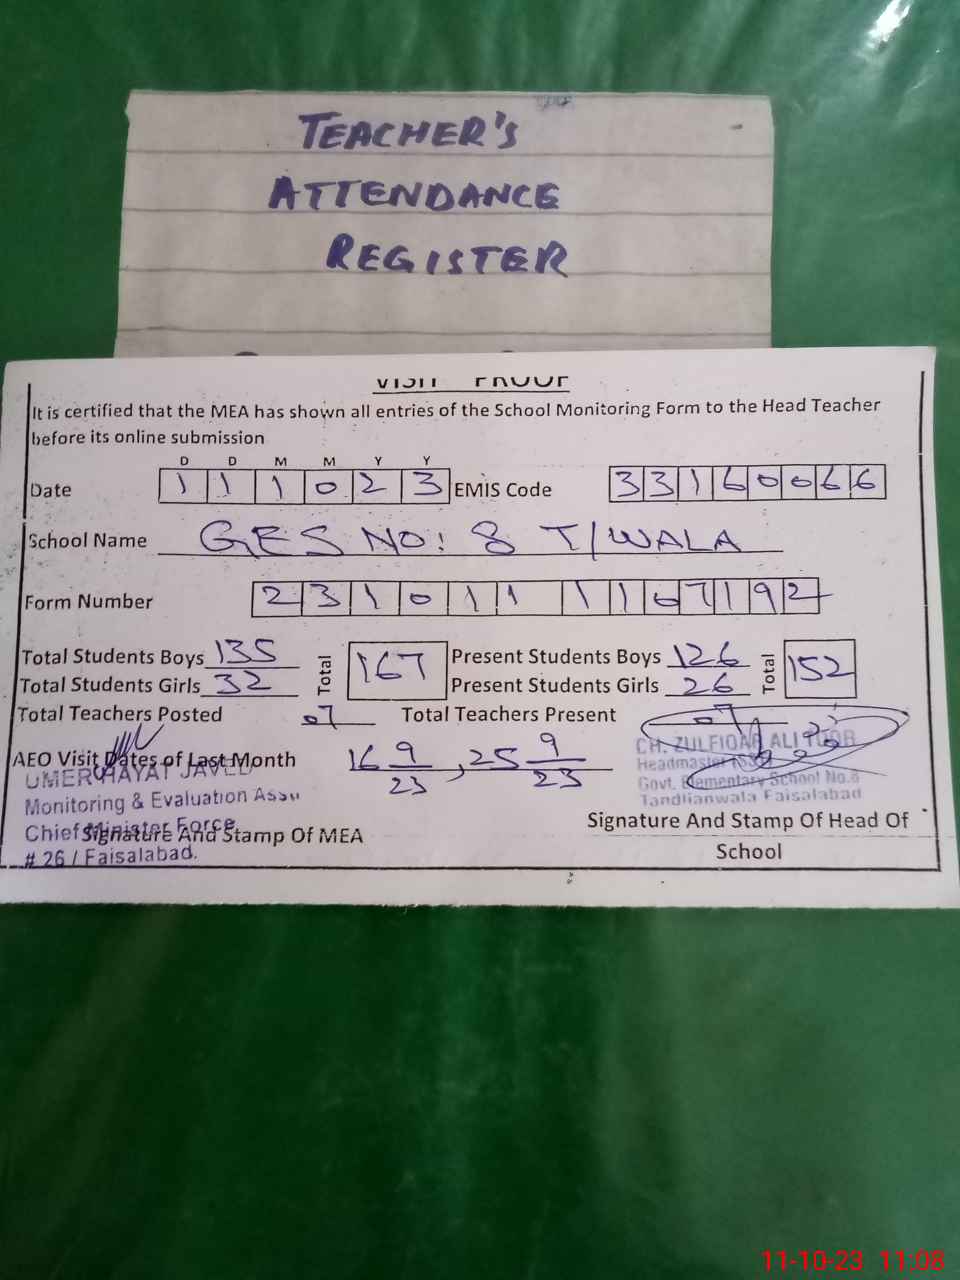 TEACHER'S
ATTENDANCE
REGISTER
VISIT PROOF
It is certified that the MEA has shown all entries of the School Monitoring Form to the Head Teacher
before its online submission
D D M M Y Y
Date 1 1 1 0 2 3 EMIS Code 3 3 1 6 0 0 6 6
School Name GES NO: 8 T/WALA
Form Number 2 3 1 0 1 1 1 1 0 7 1 9 2
Total Students Boys 135 Total 167 Present Students Boys 126 Total 152
Total Students Girls 32 Present Students Girls 26
Total Teachers Posted 07 Total Teachers Present 07
AEO Visit Dates of Last Month 16 9/23, 25 9/23
UMER HAYAT JAVED
Monitoring & Evaluation Assu
Chief Minister Force
# 26 / Faisalabad.
Signature And Stamp Of MEA
CH. ZULFIQAR ALI
Headmaster
Govt. Elementary School No.8
Tandlianwala Faisalabad
Signature And Stamp Of Head Of
School
11-10-23 11:08